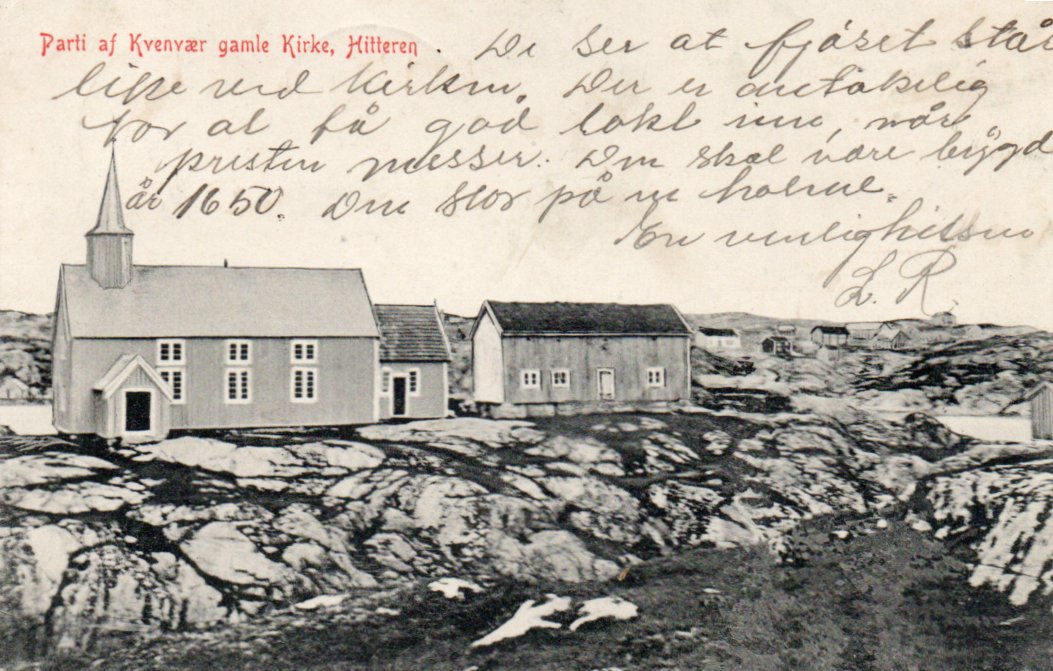 Parti af Kvenvær gamle Kirke, Hitteren
De ser at fjöset står
like ved Kirken. Der er
for at få god lokt inn, når
presten messer. Den skal være bygd
år 1650. Den stor på en holme.
En venlighilsen
L. R